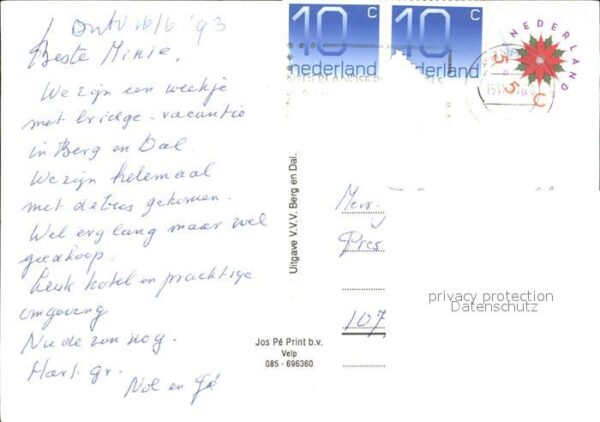 16/6 '93
Beste Minie,
We zijn een weekje
met bridge-vacantie
in Berg en Dal.
We zijn helemaal
met de bus gekomen.
Wel erg lang maar wel
goedkoop.
Leuk hotel en prachtige
omgeving
Nu de zon nog.
Hart. gr.
Not en Gé
10 c 10 c
nederland nederland
NEDERLAND
55 c
Uitgave V.V.V. Berg en Dal.
Jos Pé Print b.v.
Velp
085 - 696360
Mevr.
Pres
107
privacy protection
Datenschutz